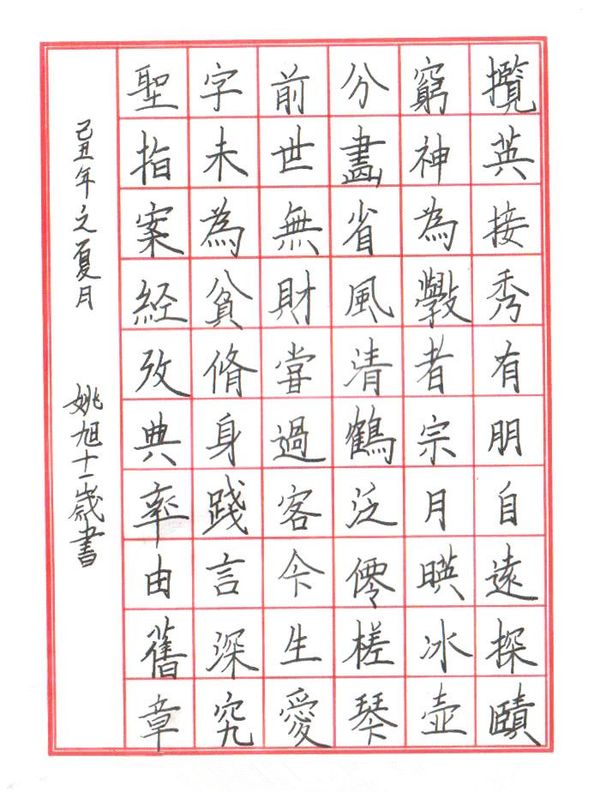 攬英接秀有朋自遠探賾
窮神為斅者宗月暎冰壺
分畵省風清鶴泛僊槎琴
前世無財甞過客今生愛
字未為貧脩身踐言深究
聖指案経攷典率由舊章
己丑年之夏月 姚旭十一歲書